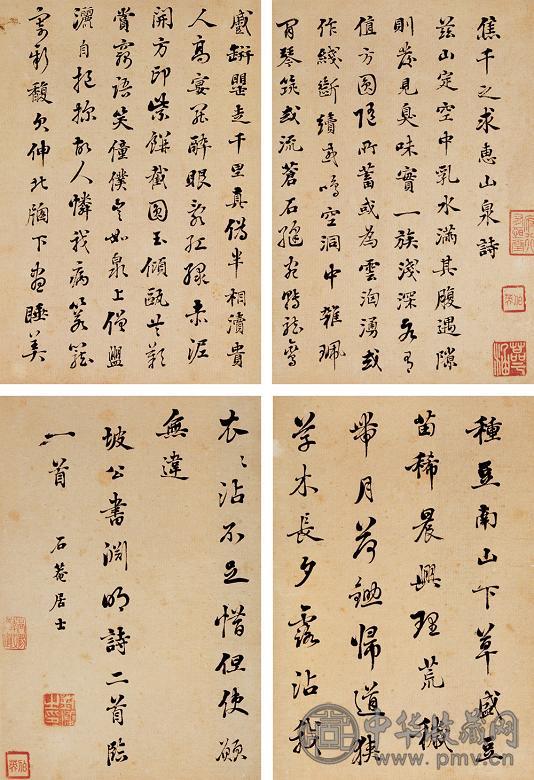 焦千之求惠山泉詩
茲山定空中乳水滿其腹遇隙
則發見臭味實一族淺深各有
值方圓隨所蓄或為雲洶湧或
作綫斷續或鳴空洞中雜珮
間琴筑或流蒼石縫宛轉龍鸞
蹙缾罌走千里真偽半相瀆貴
人高宴罷醉眼亂紅綠赤泥
開方印紫餅截圓玉傾甌共歎
賞竊語笑僮僕豈如泉上僧盥
灑自挹掬故人憐我病蒻籠
寄新馥欠伸北牕下晝睡美
種豆南山下草盛豆
苗稀晨興理荒穢
帶月荷鋤歸道狹
草木長夕露沾我
衣〻沾不足惜但使願
無違
坡公書淵明詩二首臨
一首
石菴居士
中华收藏网
www.pmv.cn